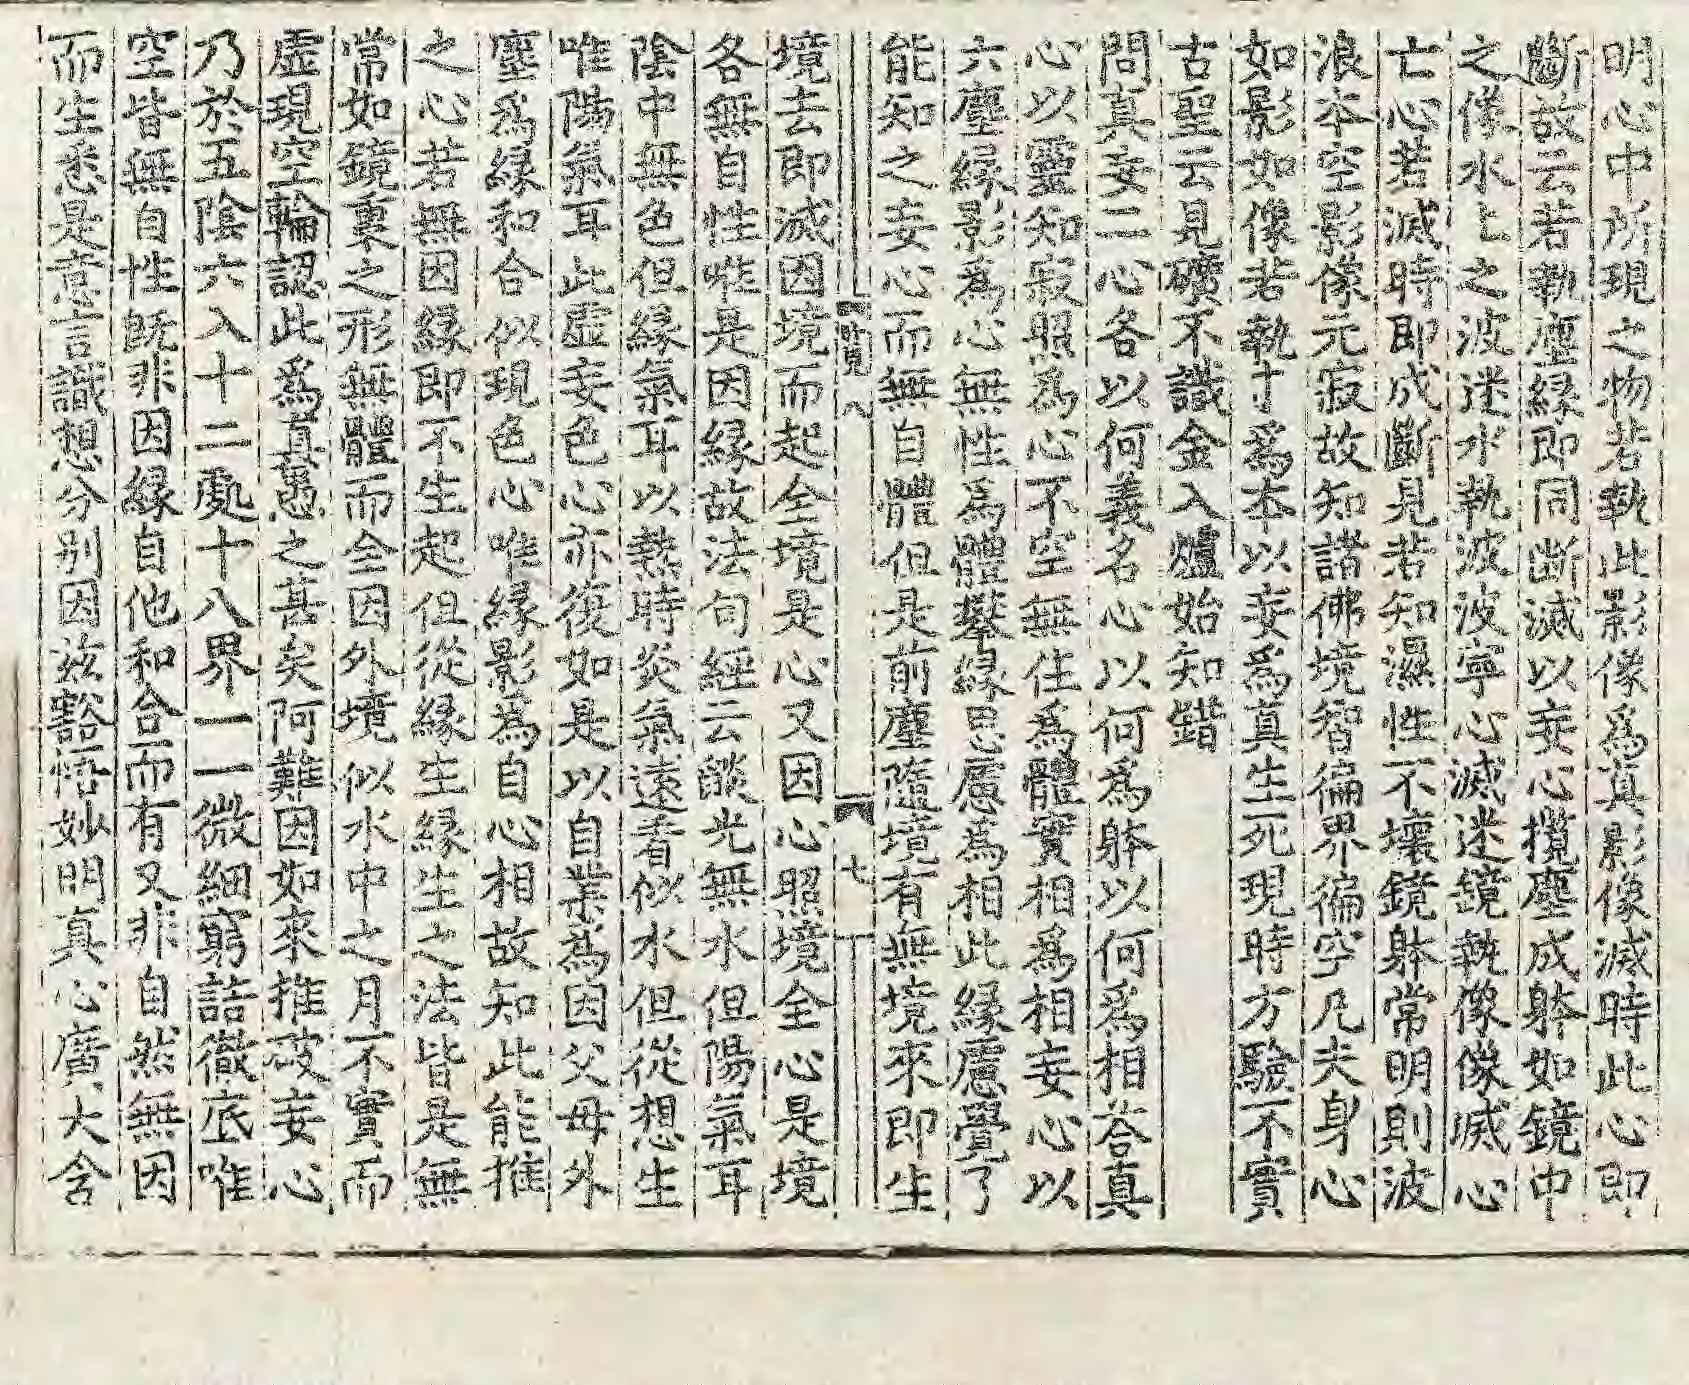 明心中所現之物若執此影像爲真影像滅時此心即
斷故云若執塵緣即同斷滅以妄心攬塵成躰如鏡中
之像水上之波迷水執波波寧心滅迷鏡執像像滅心
亡心若滅時即成斷見若知濕性不壞鏡躰常明則波
浪本空影像元寂故知諸佛境智徧界徧空凡夫身心
如影如像若執末爲本以妄爲真生死現時方驗不實
古聖云見礦不識金入爐始知錯
問真妄二心各以何義名心以何爲躰以何爲相荅真
心以靈知寂照爲心不空無住爲體實相爲相妄心以
六塵緣影爲心無性爲體攀緣思慮爲相此緣慮覺了
能知之妄心而無自體但是前塵隨境有無境來即生
八
七
境去即滅因境而起全境是心又因心照境全心是境
各無自性唯是因緣故法句經云燄光無水但陽氣耳
陰中無色但緣氣耳以熱時炎氣遠看似水但從想生
唯陽氣耳此虛妄色心亦復如是以自業爲因父母外
塵爲緣和合似現色心唯緣影爲自心相故知此能推
之心若無因緣即不生起但從緣生緣生之法皆是無
常如鏡裏之形無體而全因外境似水中之月不實而
虛現空輪認此爲真愚之甚矣阿難因如來推破妄心
乃於五陰六入十二處十八界一一微細窮詰徹底唯
空皆無自性旣非因緣自他和合而有又非自然無因
而生悉是意言識想分別因兹豁悟妙明真心廣大含